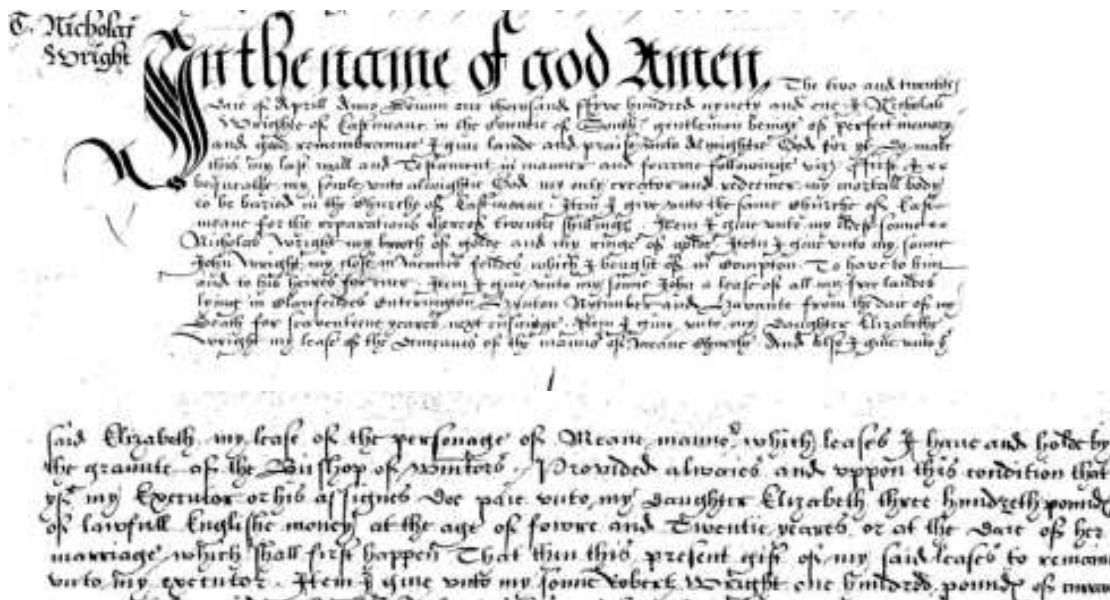 T. Nicholas
Wright
In the name of god Amen. The two and twentith
Daie of Aprill Anno Domini one thousand ffyve hundred nynety and one I Nicholas
Wrighte of Eastmeane in the Countie of gentleman beinge of perfect memory
and good remembraunce I give laude and praise unto Almightie God for yt Do make
this my last will and Testament in manner and fourme followinge viz ffirst I
bequeathe my sowle unto almightie God my only creator and redeemer my mortall body
to be buried in the Churche of Eastmeane. Item I give unto the same Churche of East
meane for the reparations thereof twentie shillinges. Item I give unto my sonne
Nicholas Wright my of golde and my ringe of golde Item I give unto my sonne
John Wright my close in feildes which I bought of mr Compton. To have to him
and to his heires for ever. Item I give unto my sonne John a lease of all my free landes
lyeing in and from the daie of my
Death for seaventeene yeares next ensuinge. Item I give unto my Daughter Elizabethe
Wright my lease of the demeanes of the mannor of Meane And also I give unto
said Elizabeth my lease of the personage of Meane mannor which leases I have and holde by
the graunte of the Bisshop of Provided alwaies and uppon this condition that
yf my Executor or his assignes doe paie unto my daughter Elizabeth three hundreth poundes
of lawfull Englishe money at the age of fowre and Twentie yeares or at the daie of her
marriage which shall first happen That then this present gift of my said leases to remaine
unto my executor. Item I give unto my sonne Robert Wright one hundred poundes of